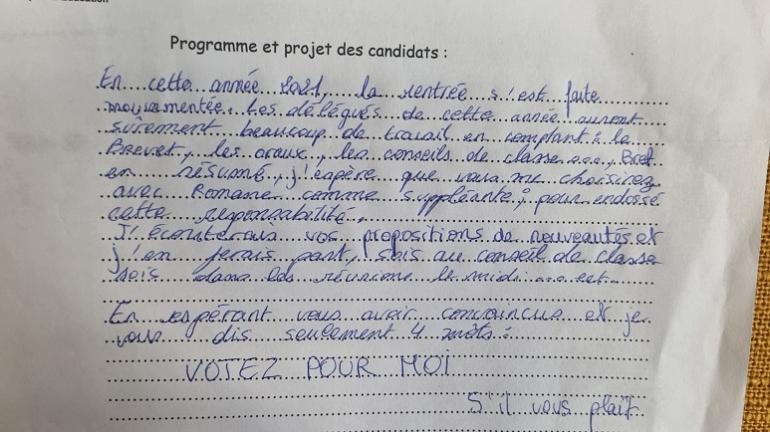 Programme et projet des candidats :
En cette année 2021, la rentrée s'est faite
mouvementée. Les délégués de cette année auront
sûrement beaucoup de travail en comptant : le
Brevet, les oraux, les conseils de classe..., Bref
en résumé, j'espère que vous me choisirez
avec Romane comme suppléante, pour endossé
cette responsabilité.
J'écouterais vos propositions de nouveautés et
j'en ferais part, sois au conseil de classe
sois dans les réunions le midi... ect...
En espérant vous avoir convaincus et je
vous dis seulement 4 mots :
VOTEZ POUR MOI
S'il vous plaît.